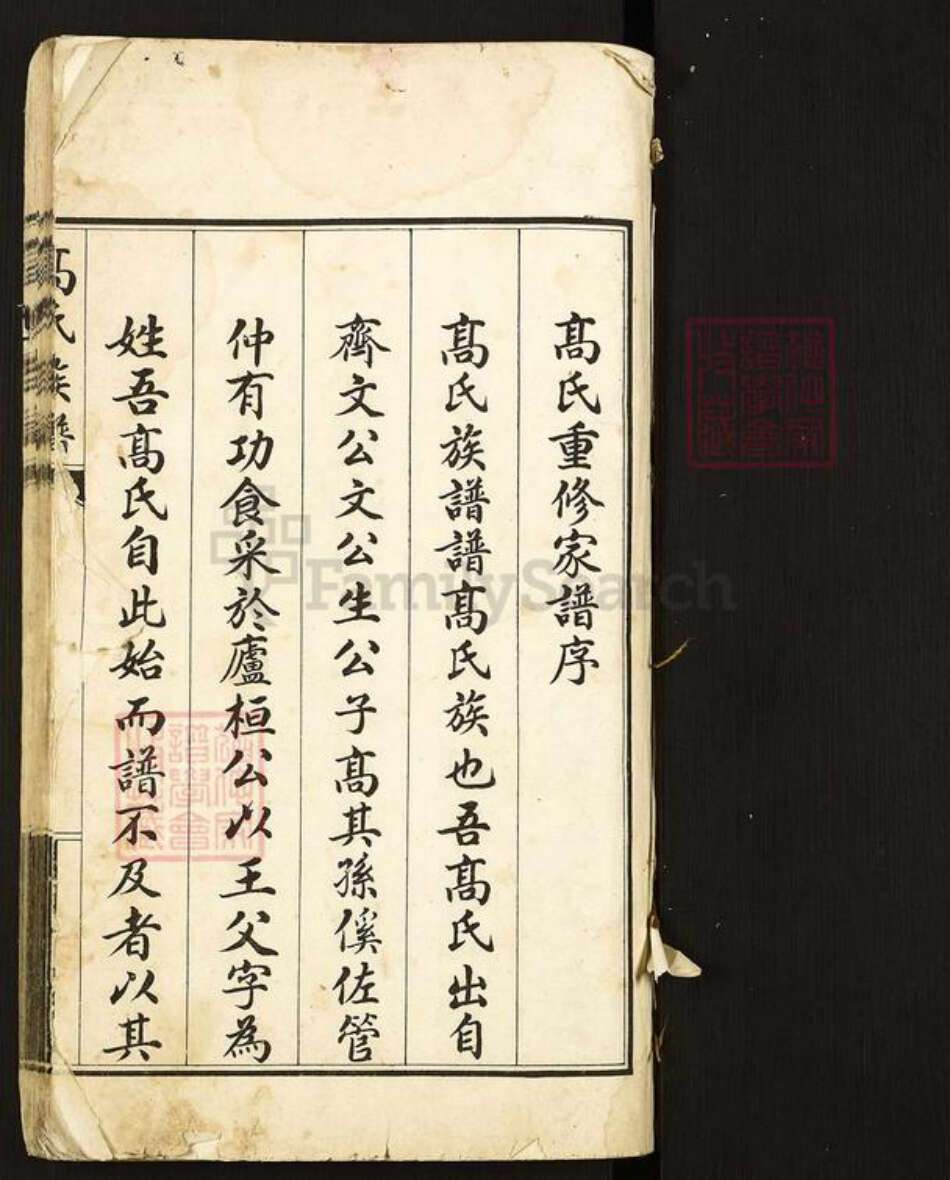 髙氏重修家譜序
髙氏族譜譜髙氏族也吾髙氏出自
齊文公文公生公子髙其孫傒佐管
仲有功食采於廬桓公以王父字為
姓吾髙氏自此始而譜不及者以其
髙氏族譜
FamilySearch